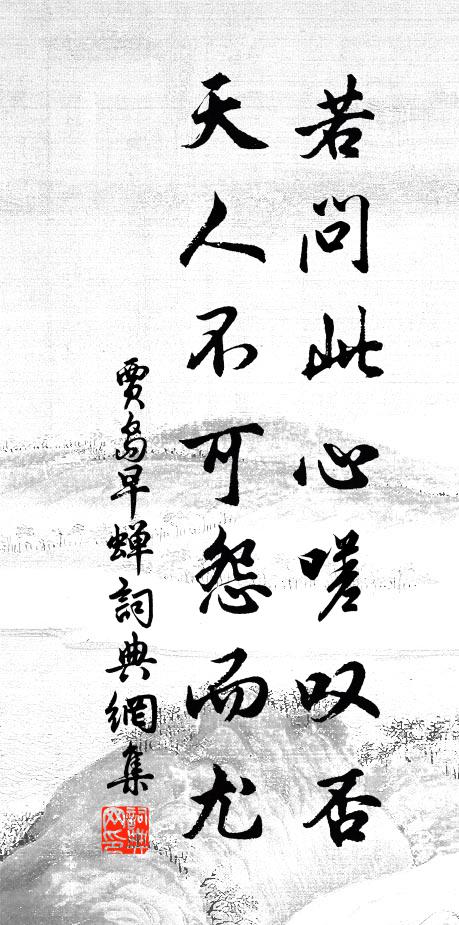 若问此心嗟叹否
天人不可怨而尤
賈島早蝉詞典網集